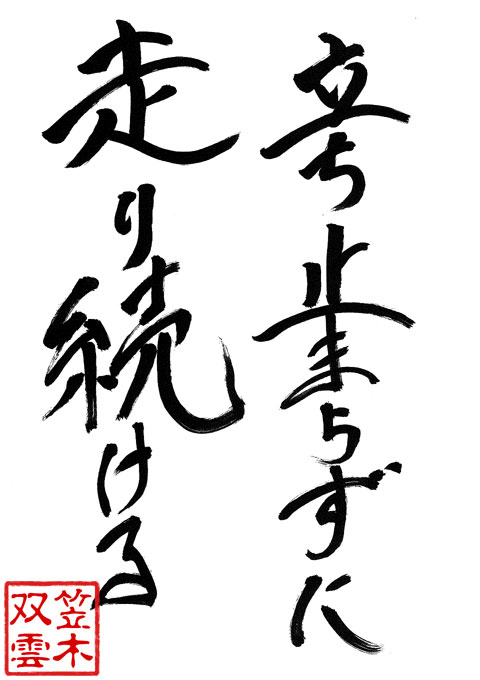 立ち止まらずに
走り続ける
笠木
双雲